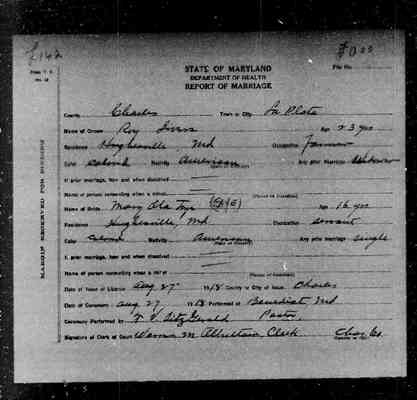 £142
$0.00
Form V. S.
STATE OF MARYLAND
File No.
DEPARTMENT OF HEALTH
REPORT OF MARRIAGE
MARGIN RESERVED FOR BINDING
County Charles Town or City La Plata
Name of Groom Roy Age 23 yrs
Residence Hughesville, Md Occupation Farmer
Color colored Nativity American Any prior Marriage
If prior marriage, how and when dissolved
Name of person consenting when a minor
Name of Bride Mary Age 16 yrs
Residence Hughesville, Md. Occupation servant
Color Nativity American Any prior marriage single
If prior marriage, how and when dissolved
Name of person consenting when a minor
Date of Issue of License Aug 27 1918 County or City of Issue Charles
Date of Ceremony Aug 27 1918 Performed at Benedict Md
Ceremony Performed by FitzGerald Pastor,
Signature of Clerk of Court M Clerk Chas Co.